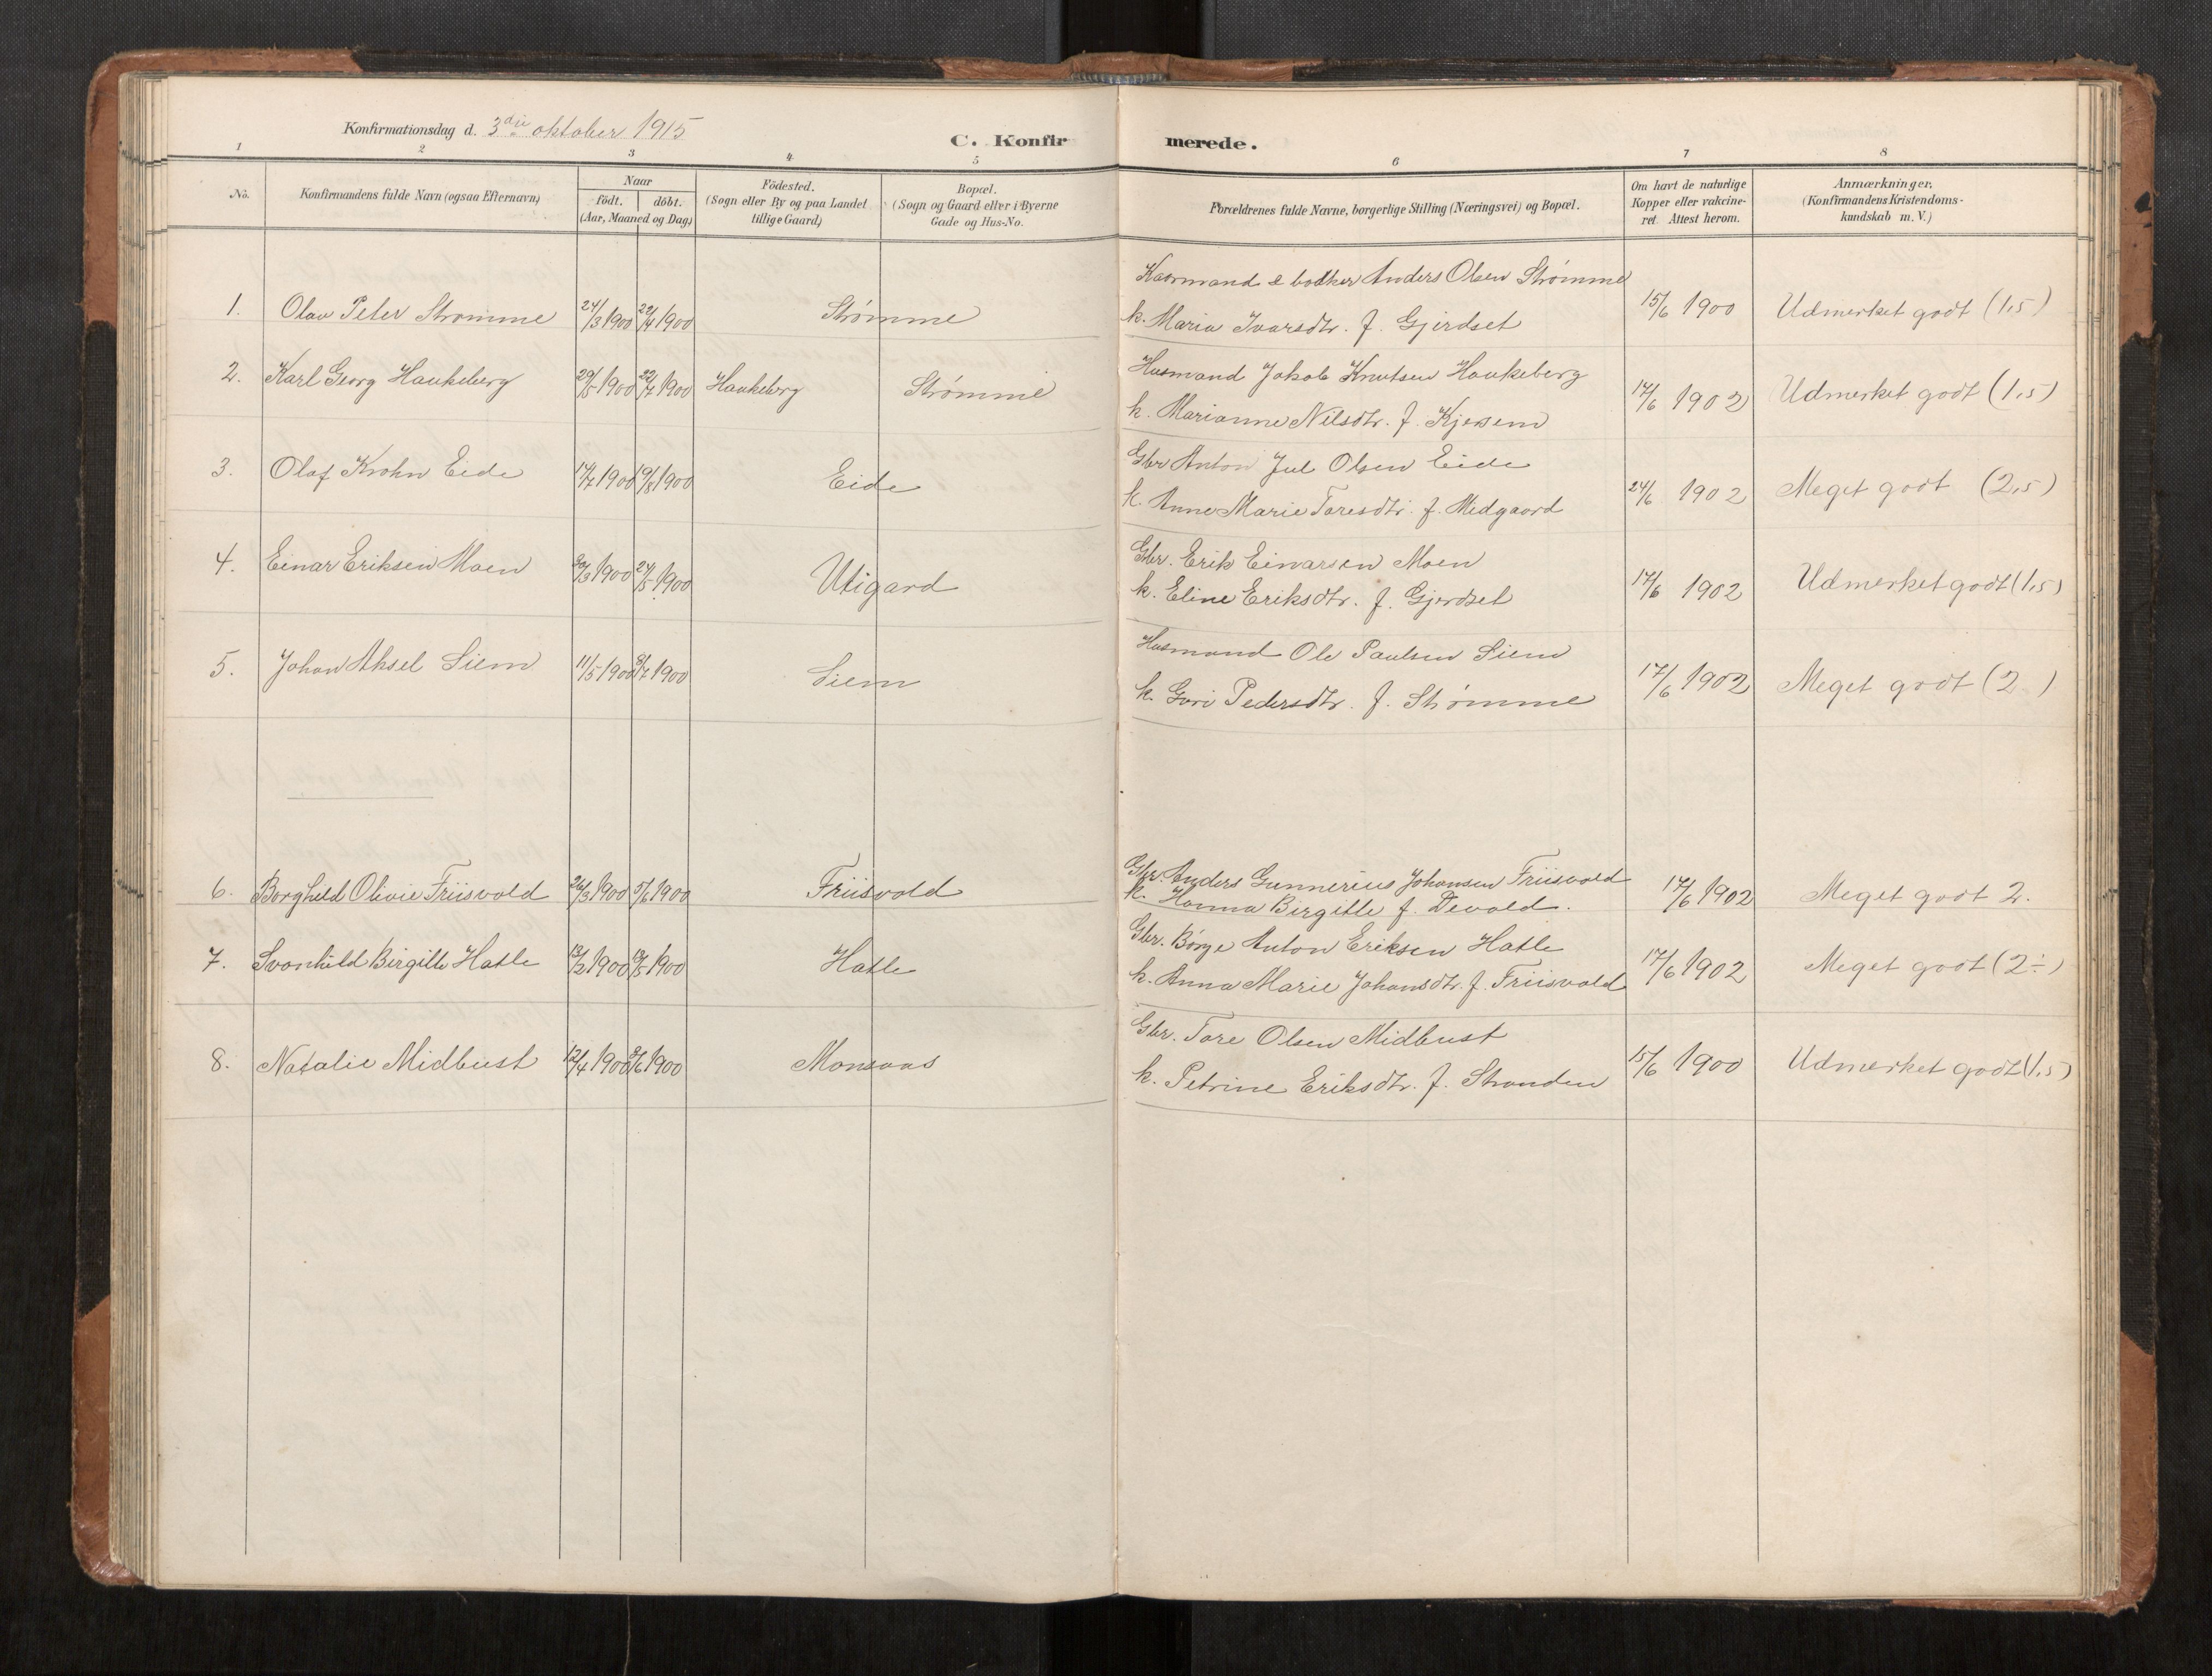 Konfirmationsdag d. 3die oktober 1915
C. Konfirmerede.
1 2 3 4 5 6 7 8
No.
Konfirmandens fulde Navn (ogsaa Efternavn)
Naar
födt. döbt.
(Aar, Maaned og Dag)
Födested.
(Sogn eller By og paa Landet
tillige Gaard)
Bopæl.
(Sogn og Gaard eller i Byerne
Gade og Hus-No.
Forældrenes fulde Navne, borgerlige Stilling (Næringsvei) og Bopæl.
Om havt de naturlige
Kopper eller vakcine-
ret. Attest herom.
Anmærkninger.
(Konfirmandens Kristendoms-
kundskab m. V.)
1. Olav Peter Strømme 24/3 1900 22/4 1900 Strømme
Kaarmand & bødker Anders Olsen Strømme
k. Maria Ivarsdtr. f. Gjerdset
15/6 1900 Udmerket godt (1,5)
2. Karl Georg Haukeberg 29/5 1900 22/7 1900 Haukeberg Strømme
Husmand Jakob Knutsen Haukeberg
k. Marianne Nilsdtr. f. Kjersem
17/6 1902 Udmerket godt (1,5)
3. Olaf Krohn Eide 17/7 1900 19/8 1900 Eide
Gbr Anton Jul Olsen Eide
k. Anne Marie Toresdtr. f. Medgaard
24/6 1902 Meget godt (2,5)
4. Einar Eriksen Moen 30/3 1900 24/5 1900 Utigard
Gbr. Erik Einarsen Moen
k. Eline Eriksdtr. f. Gjerdset
17/6 1902 Udmerket godt (1,5)
5. Johan Aksel Siem 11/5 1900 8/7 1900 Siem
Husmand Ole Paulsen Siem
k. Guri Pedersdtr. f. Strømme
17/6 1902 Meget godt (2 )
6. Borghild Olivie Friisvold 26/3 1900 5/6 1900 Friisvold
Gbr. Anders Gunnerius Johansen Friisvold
k. Hanna Birgitte f. Devold.
17/6 1902 Meget godt 2.
7. Svanhild Birgitte Hatle 13/2 1900 13/5 1900 Hatle
Gbr. Børge Anton Eriksen Hatle
k. Anna Marie Johansdtr. f. Friisvold
17/6 1902 Meget godt (2 ÷)
8. Natalie Midbust 12/4 1900 5/6 1900 Monsaas
Gbr. Tore Olsen Midbust
k. Petrine Eriksdtr. f. Stranden
15/6 1900 Udmerket godt (1,5)